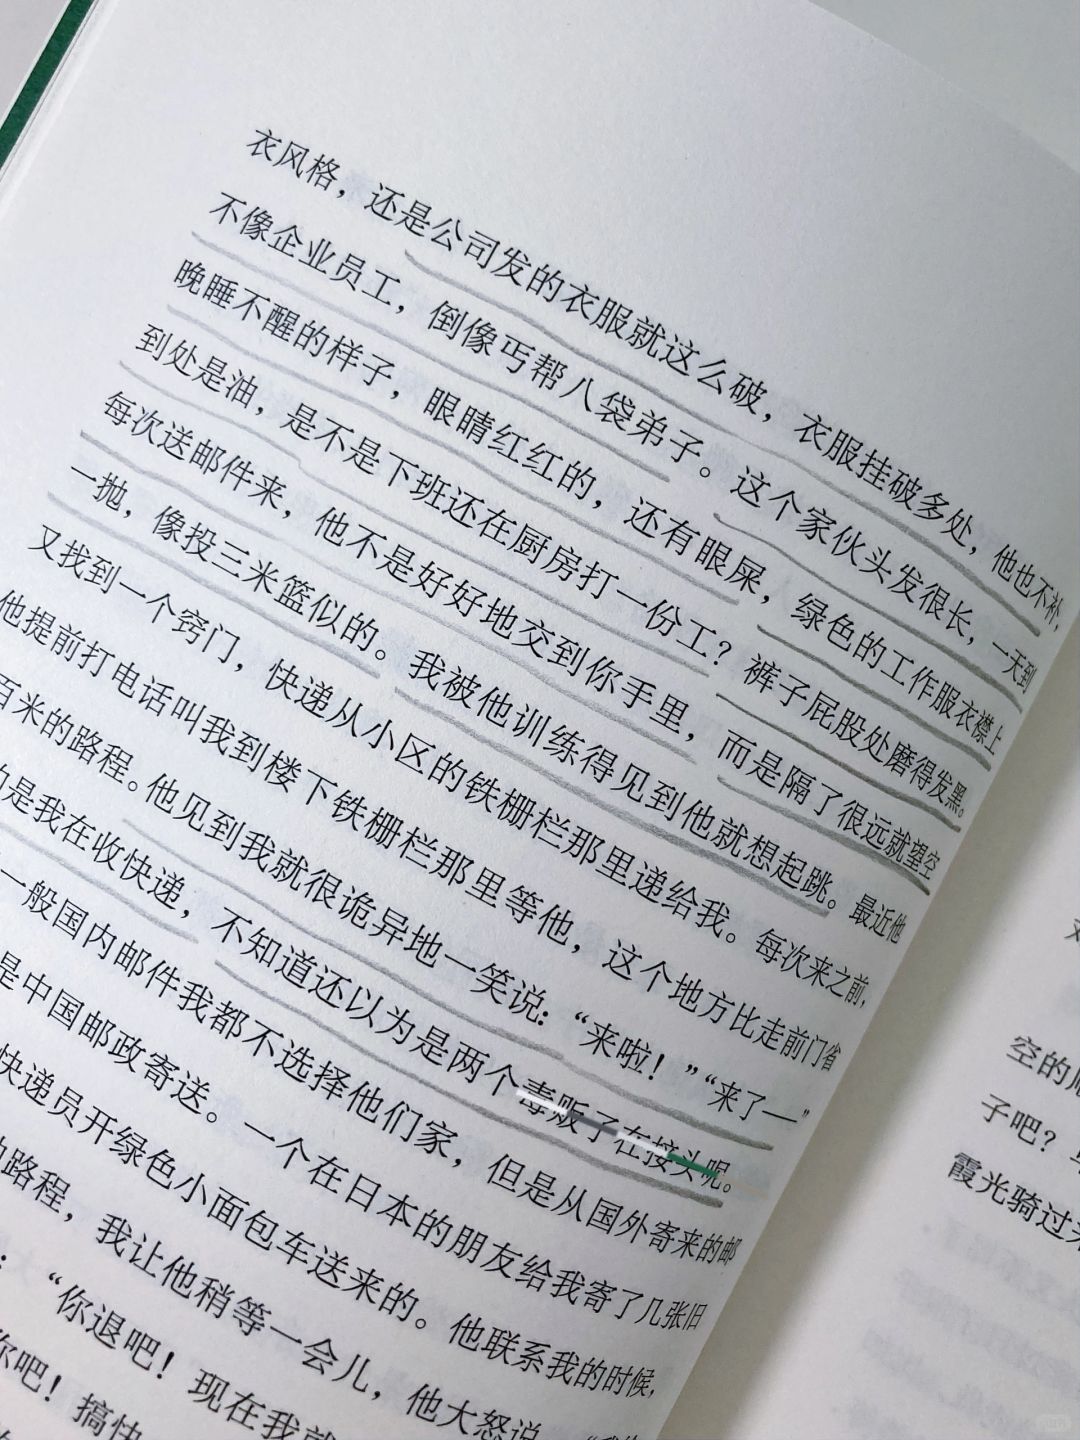 衣风格，还是公司发的衣服就这么破，衣服挂破多处，他也不补，
不像企业员工，倒像丐帮八袋弟子。这个家伙头发很长，一天到
晚睡不醒的样子，眼睛红红的，还有眼屎，绿色的工作服衣襟上
到处是油，是不是下班还在厨房打一份工？裤子屁股处磨得发黑。
每次送邮件来，他不是好好地交到你手里，而是隔了很远就望空
一抛，像投三米篮似的。我被他训练得见到他就想起跳。最近他
又找到一个窍门，快递从小区的铁栅栏那里递给我。每次来之前，
他提前打电话叫我到楼下铁栅栏那里等他，这个地方比走前门省
百米的路程。他见到我就很诡异地一笑说：“来啦！”“来了—”
是我在收快递，不知道还以为是两个毒贩了在接头呢。
一般国内邮件我都不选择他们家，但是从国外寄来的邮
是中国邮政寄送。一个在日本的朋友给我寄了几张旧
快递员开绿色小面包车送来的。他联系我的时候，
路程，我让他稍等一会儿，他大怒说
：“你退吧！现在我就
你吧！搞快
空的
子吧？
霞光骑过